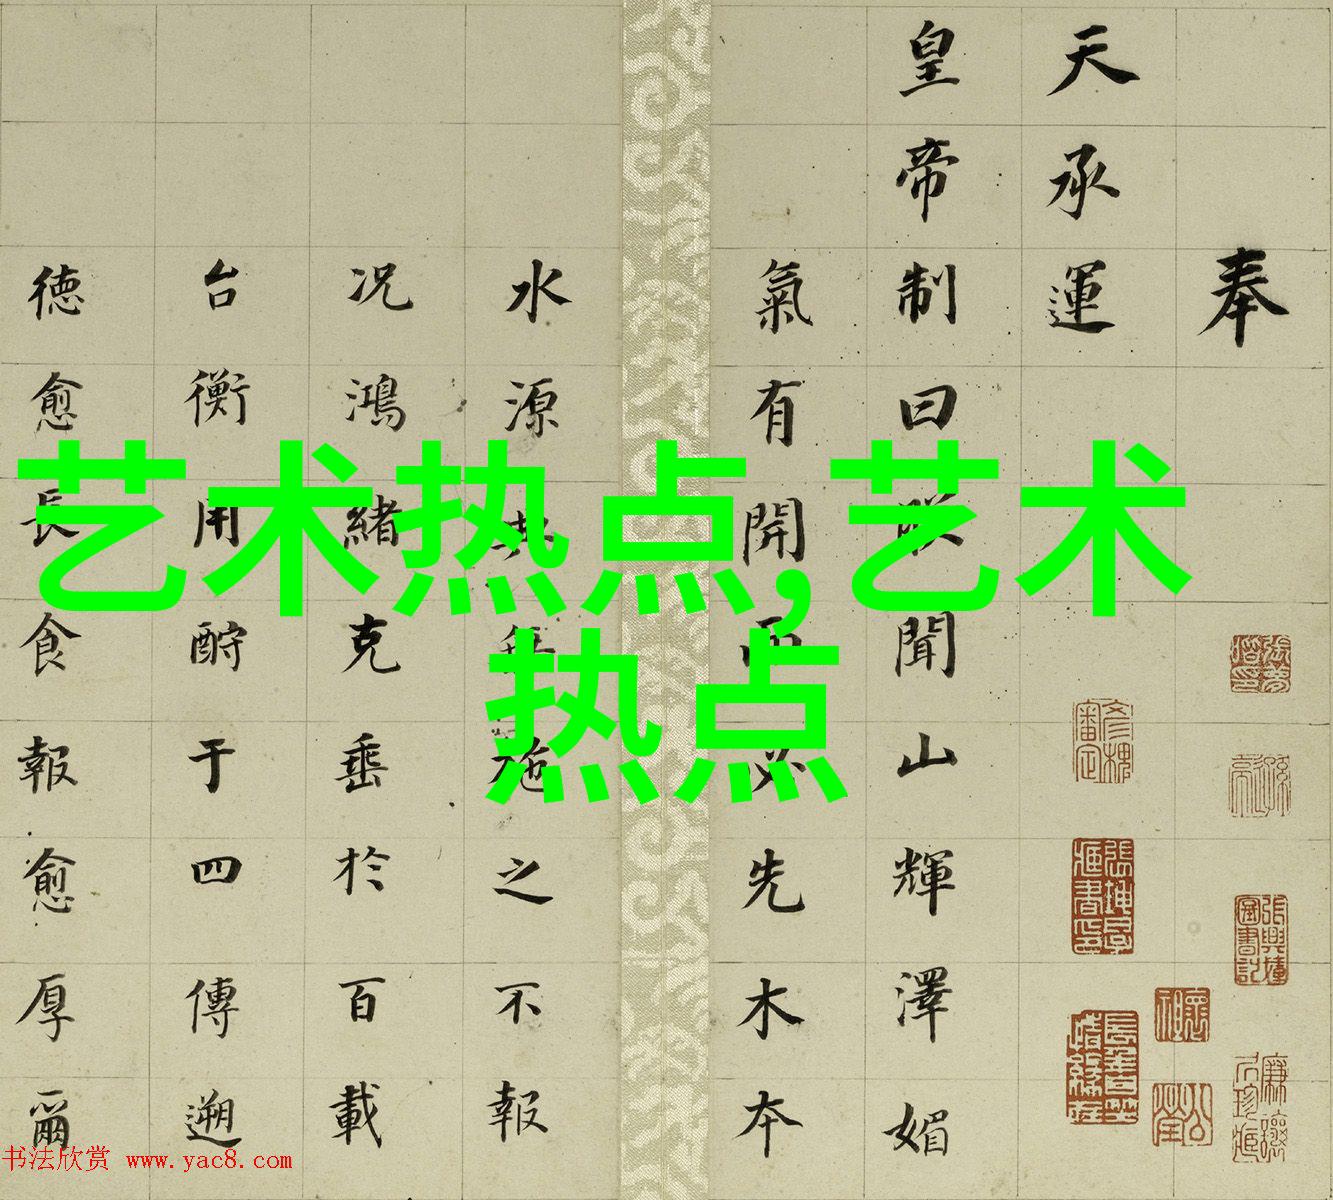 奉
天承運
皇帝制曰朕聞山輝澤媚
氣有開而必先木本
水源共無施之不報
况鴻緒克垂於百載
台衡用酧于四傳遡
德愈長食報愈厚爾
艺术热点,艺术
热点
书法欣赏 www.yac8.com